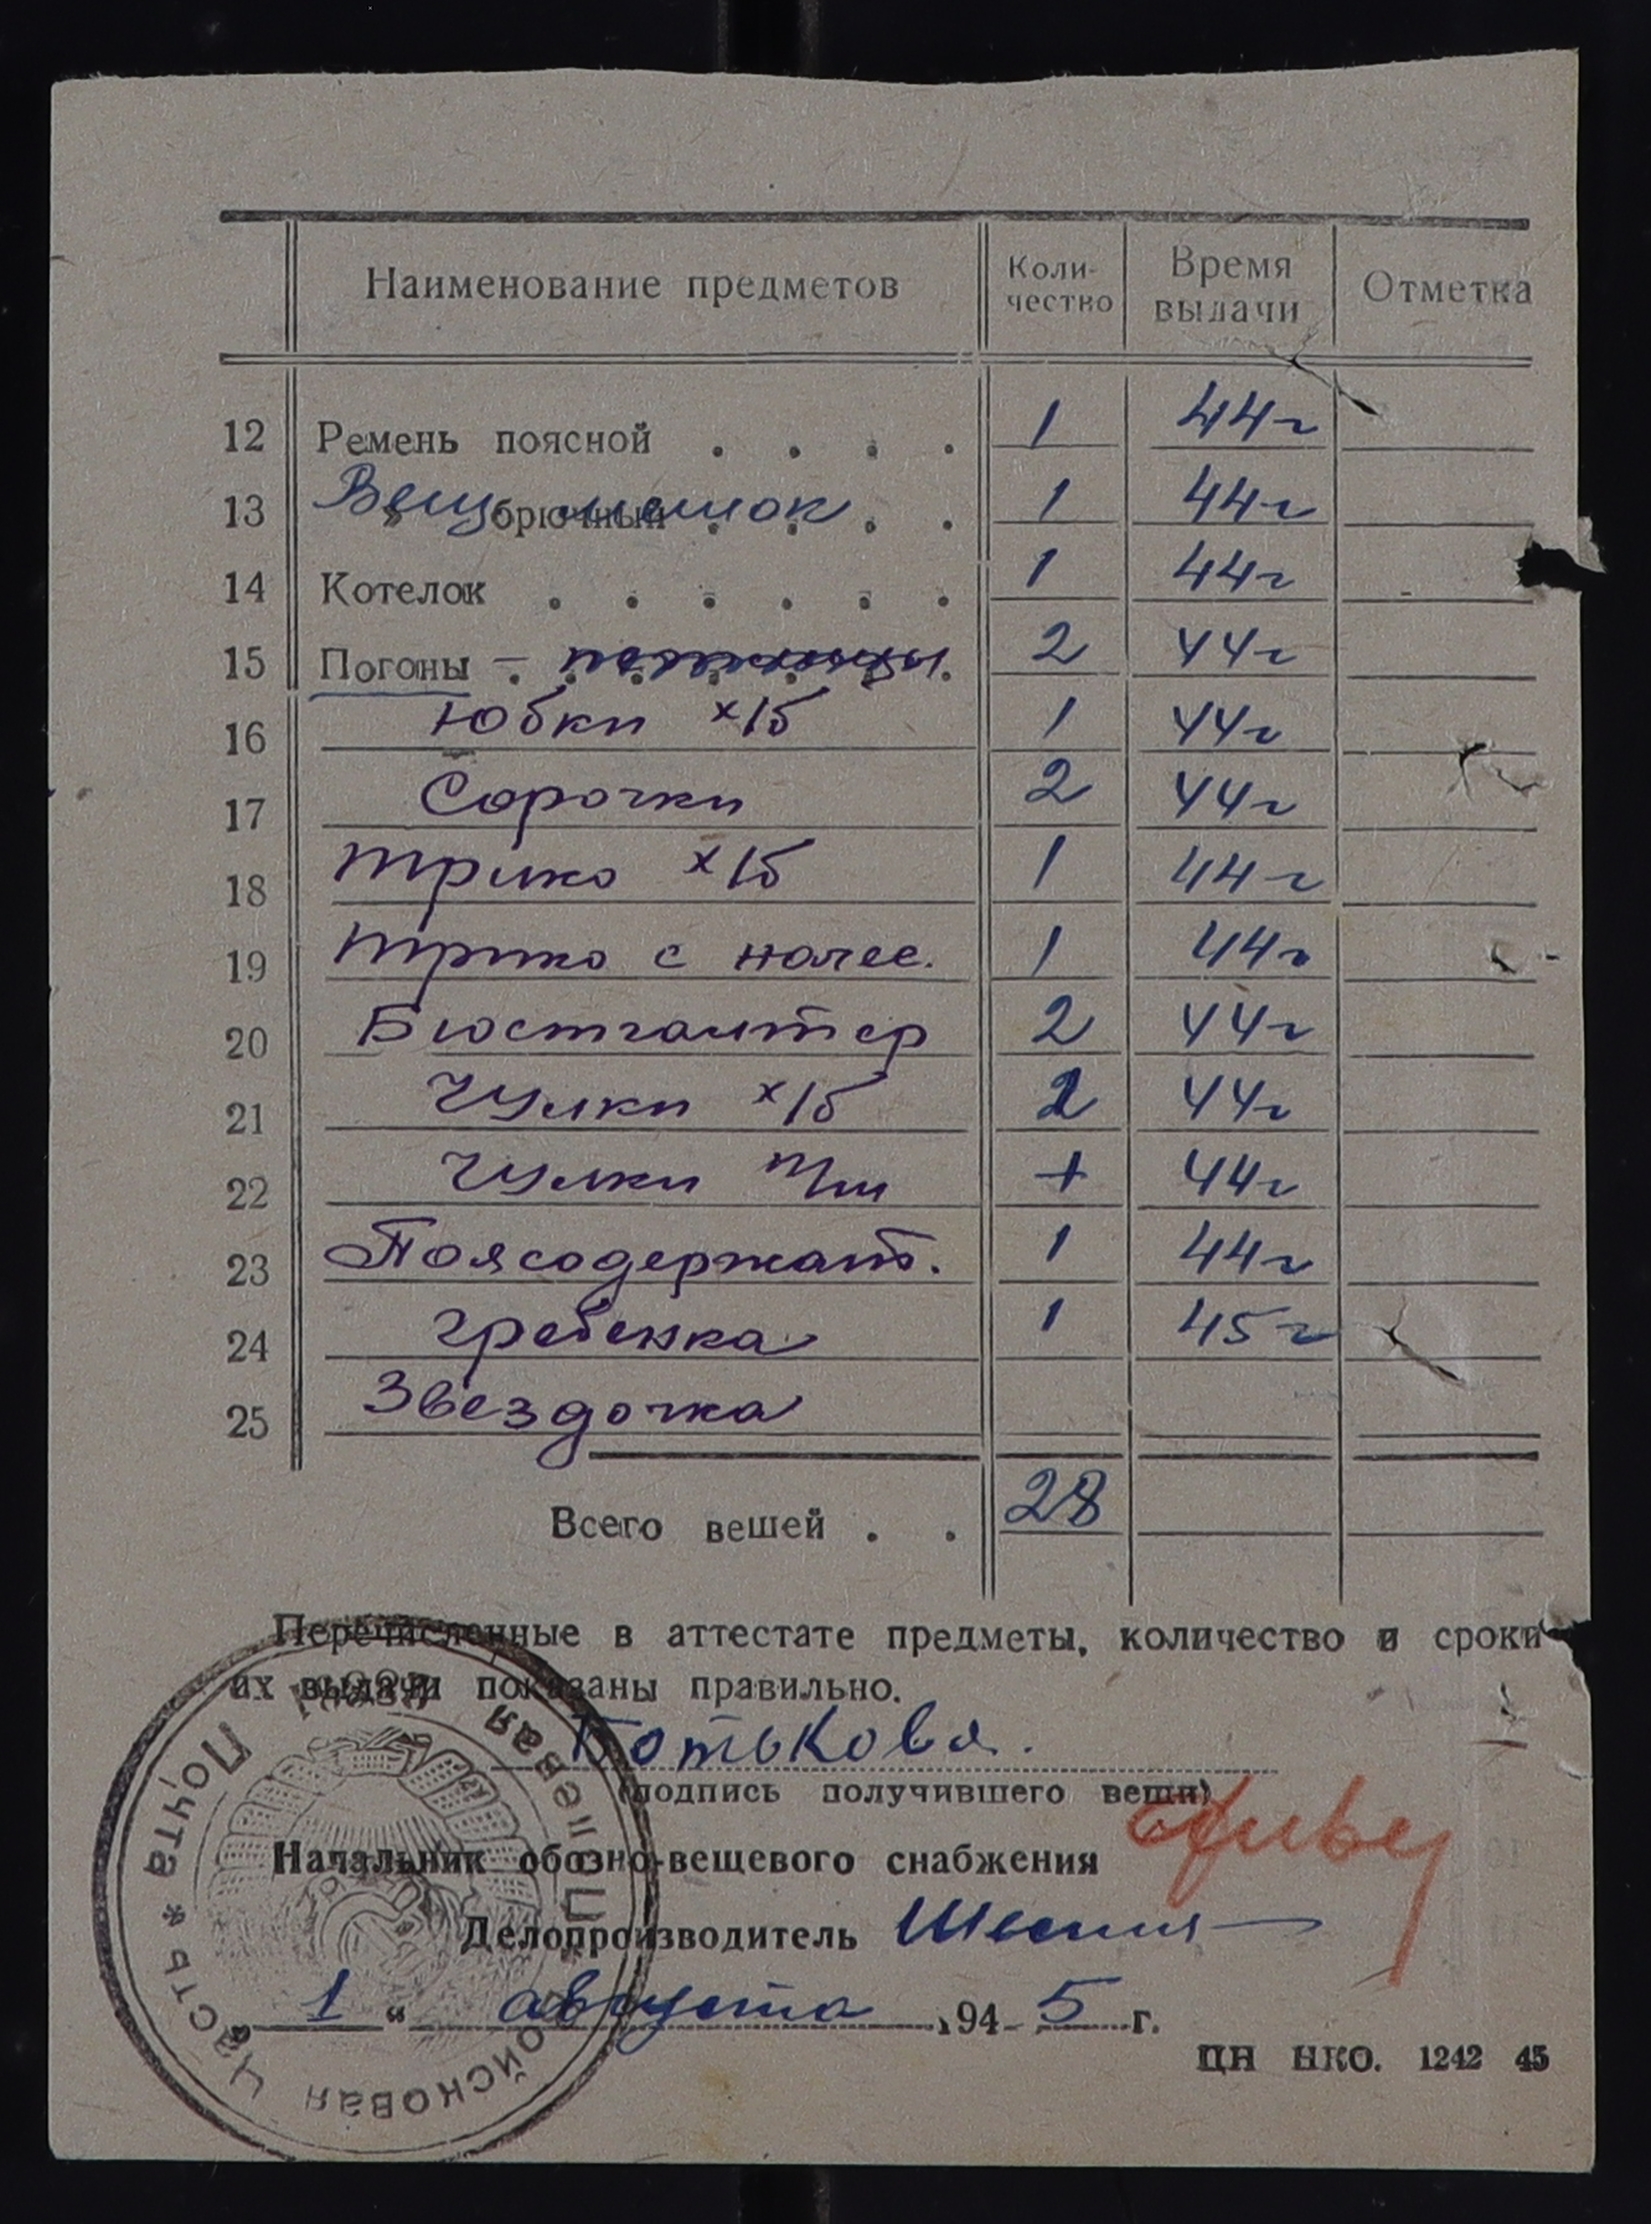 Наименование предметов Коли- чество Время выдачи Отметка
12 Ремень поясной . . . . 1 44г
13 Вещ. мешок » брючный . . . . 1 44г
14 Котелок . . . . . . 1 44г
15 Погоны – 2 44г
16 Юбки х/б 1 44г
17 Сорочки 2 44г
18 Трико х/б 1 44г
19 Трико с начес. 1 44г
20 Бюстгалтер 2 44г
21 Чулки х/б 2 44г
22 Чулки п/ш + 44г
23 Поясодержат. 1 44г
24 Гребенка 1 45г
25 Звездочка
Всего вешей . . 28
Перечисленные в аттестате предметы, количество и сроки
их выдачи показаны правильно.
Ботькова.
(подпись получившего вещи)
Начальник обозно-вещевого снабжения
Делопроизводитель
„ 1 “ августа 194 5 г.
ЦН НКО. 1242 45
Войсковая Часть * Полевая Почта